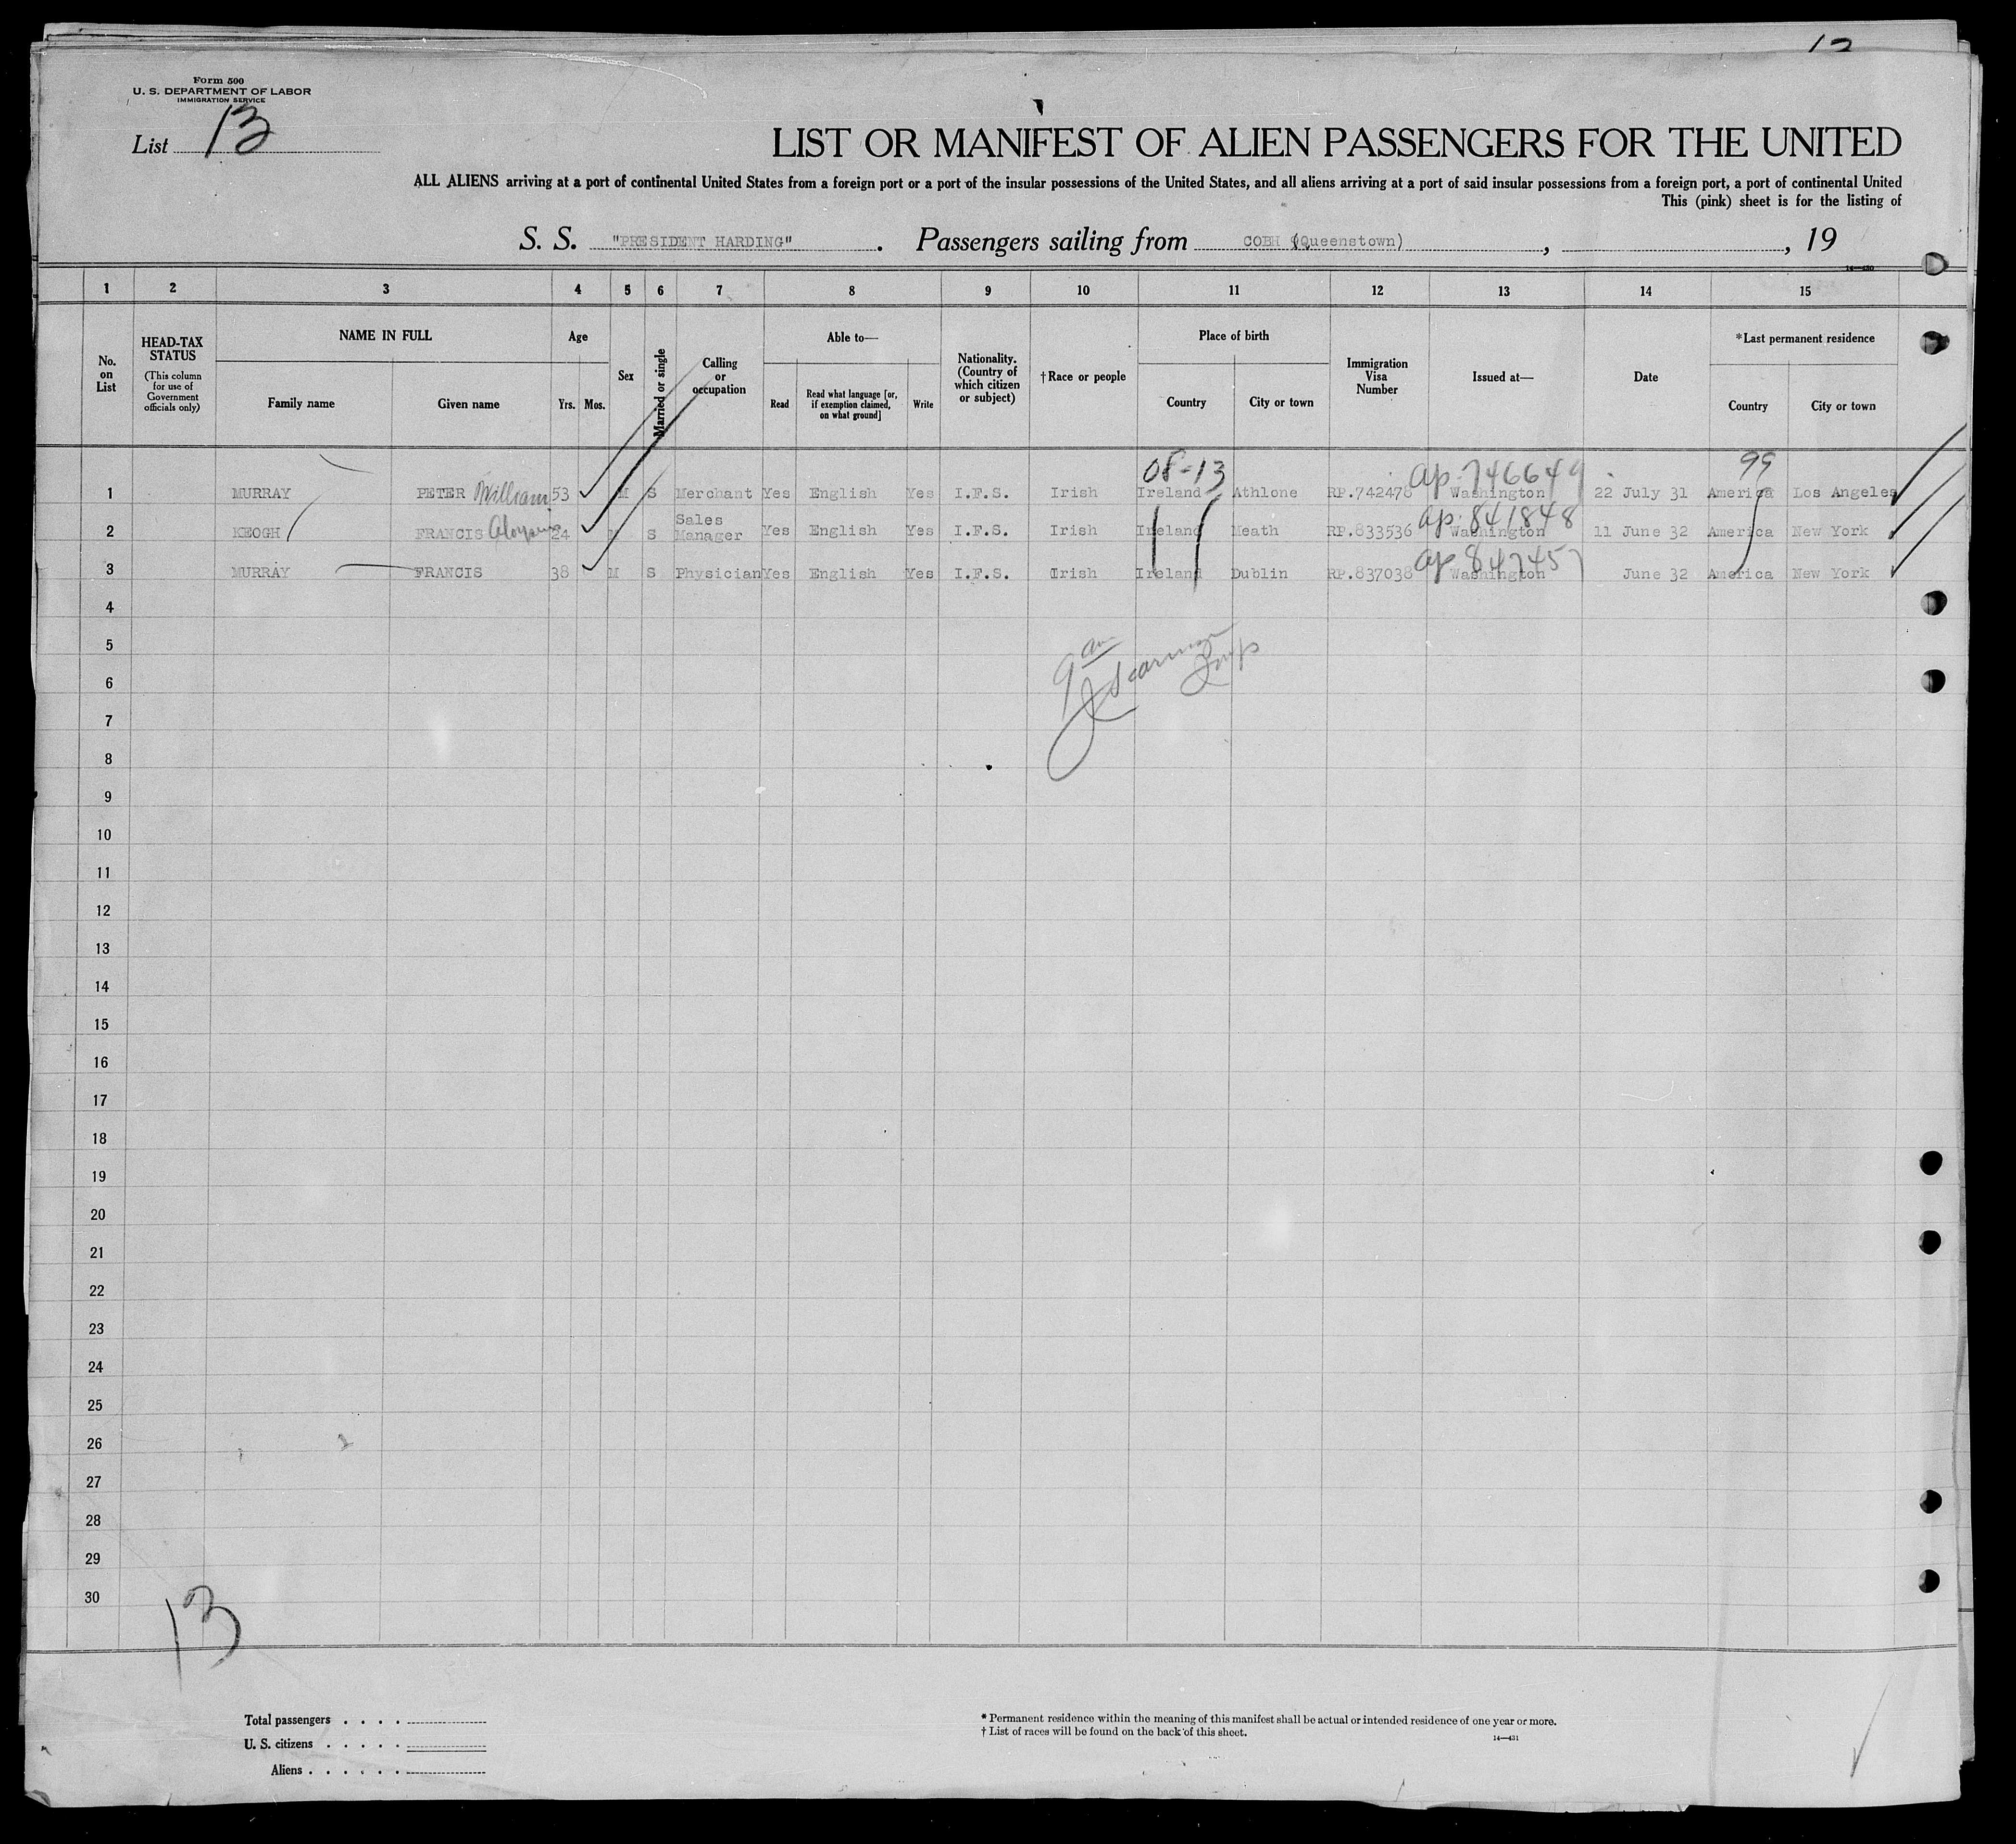 12
Form 500
U. S. DEPARTMENT OF LABOR
IMMIGRATION SERVICE
List 13
LIST OR MANIFEST OF ALIEN PASSENGERS FOR THE UNITED
ALL ALIENS arriving at a port of continental United States from a foreign port or a port of the insular possessions of the United States, and all aliens arriving at a port of said insular possessions from a foreign port, a port of continental United
This (pink) sheet is for the listing of
S. S. "PRESIDENT HARDING" . Passengers sailing from COBH (Queenstown) , , 19
14—430
1 2 3 4 5 6 7 8 9 10 11 12 13 14 15
No. on List
HEAD-TAX STATUS
(This column for use of Government officials only)
NAME IN FULL
Family name Given name
Age
Yrs. Mos.
Sex
Married or single
Calling or occupation
Able to—
Read
Read what language [or, if exemption claimed, on what ground]
Write
Nationality. (Country of which citizen or subject)
†Race or people
Place of birth
Country City or town
Immigration Visa Number
Issued at—
Date
*Last permanent residence
Country City or town
08-13 ap. 746649 99
1 MURRAY PETER William 53 M S Merchant Yes English Yes I.F.S. Irish Ireland Athlone RP.742478 Washington 22 July 31 America Los Angeles
ap. 841848
2 KEOGH FRANCIS 24 M S Sales Manager Yes English Yes I.F.S. Irish Ireland Meath RP.833536 Washington 11 June 32 America New York
ap 847457
3 MURRAY FRANCIS 38 M S Physician Yes English Yes I.F.S. Irish Ireland Dublin RP.837038 Washington June 32 America New York
4
5
6
7
8
9
10
11
12
13
14
15
16
17
18
19
20
21
22
23
24
25
26
27
28
29
30
13
Total passengers . . . .
U. S. citizens . . . . .
Aliens . . . . . .
* Permanent residence within the meaning of this manifest shall be actual or intended residence of one year or more.
† List of races will be found on the back of this sheet.
14—431